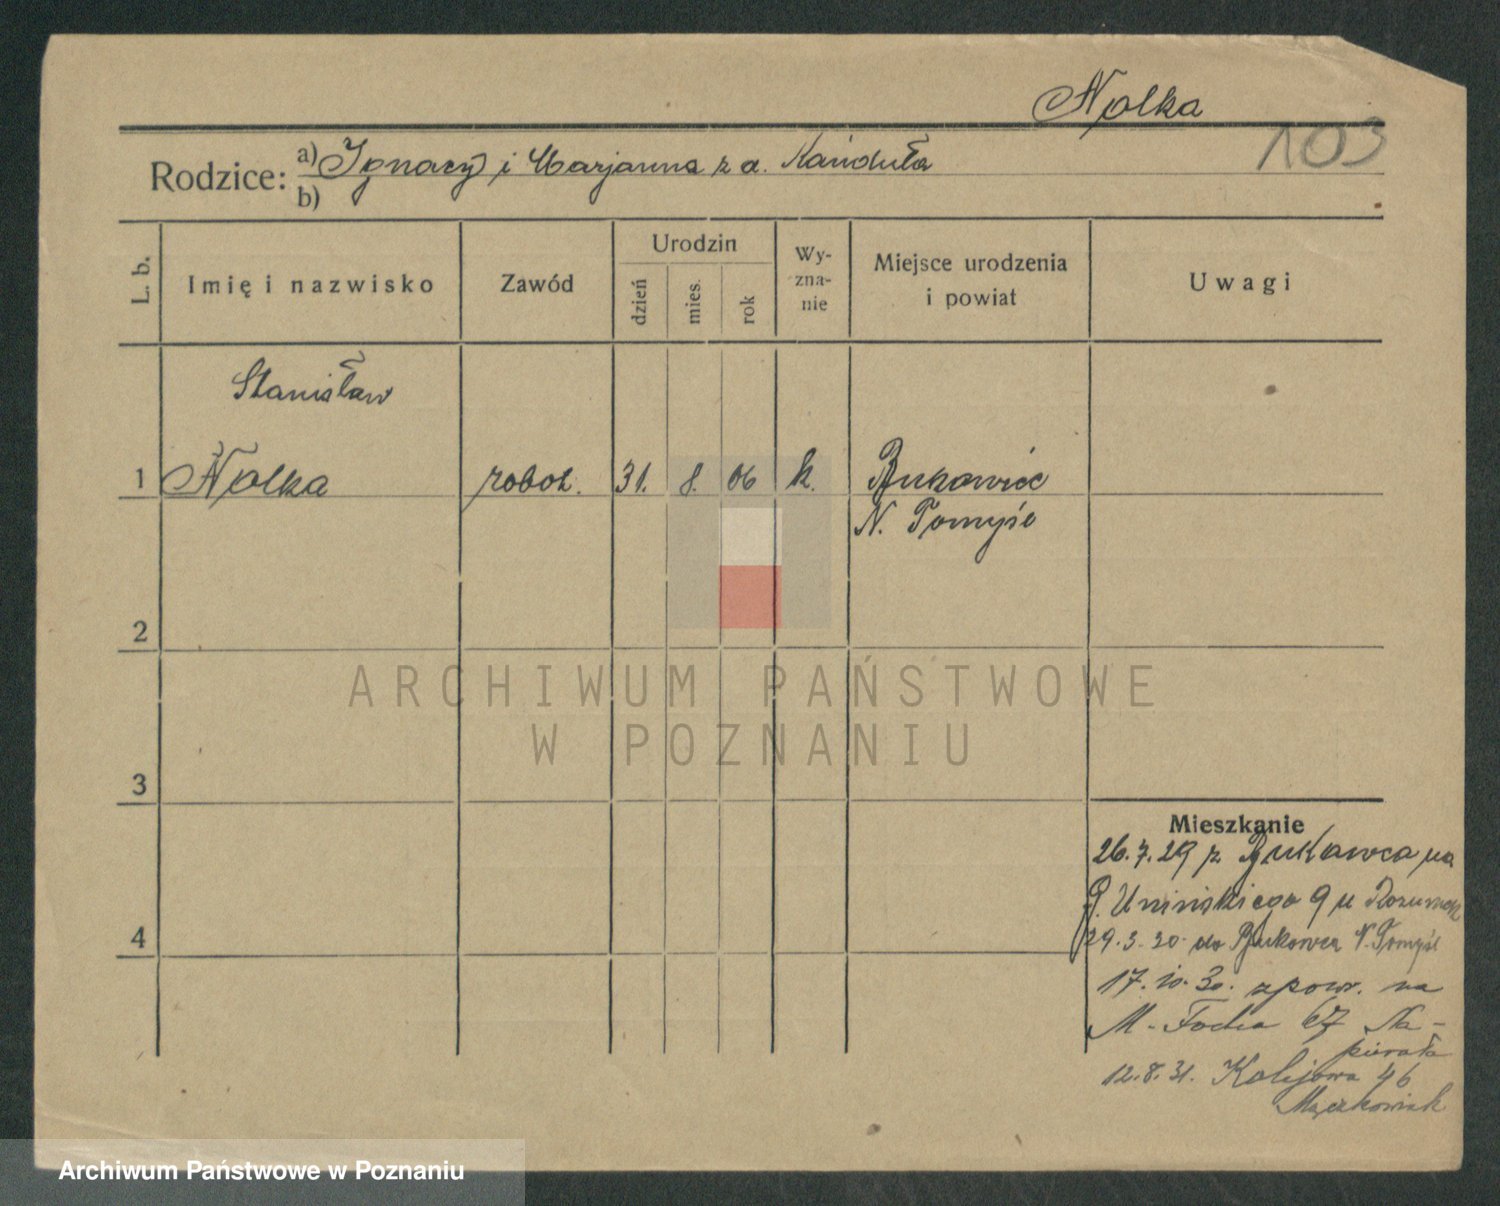 Nolka
103
Rodzice: a) Ignacy i Marjanna z d. Kańduła
b)
L. b.
Imię i nazwisko
Zawód
Urodzin
dzień
mies.
rok
Wy-
zna-
nie
Miejsce urodzenia
i powiat
Uwagi
Stanisław
1 Nolka robot. 31. 8. 06 k. Bukowiec
N. Tomyśl
2
3
4
Mieszkanie
26.7.29 z Bukowca na
9 u
29.3.30 do Bukowca N. Tomyśl
17.10.30. z powr. na
M. Focha 67 Na-
pierała
12.8.31. Kolejowa 46
Mączkowiak
ARCHIWUM PAŃSTWOWE
W POZNANIU
Archiwum Państwowe w Poznaniu